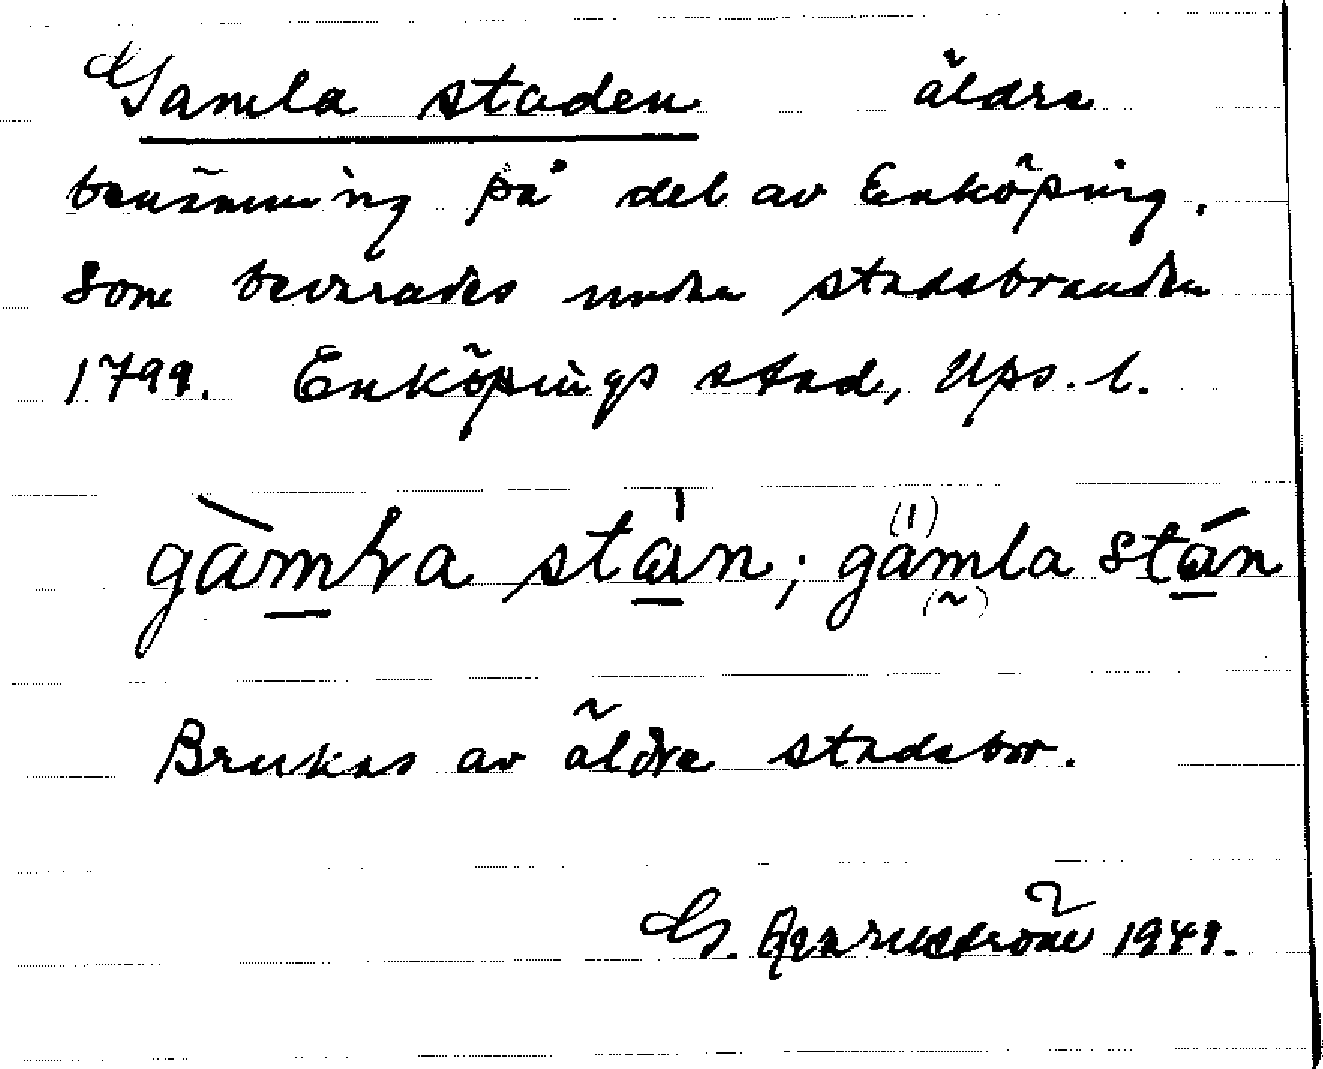 Gamla staden äldre
benämning på del av Enköping.
Som bevarades under stadsbranden
1799. Enköpings stad, Ups. l.
gàmła stan; gamla stán
Brukas av äldre stadsbor.
G. 1949.